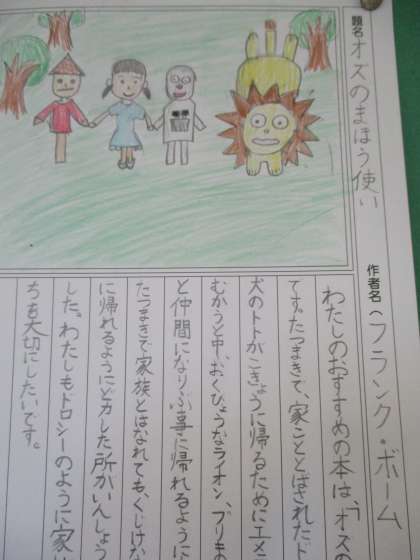 題名 オズのまほう使い
作者名（フランク・ボーム
わたしのおすすめの本は、「オズ
です。たつまきで、家ごととばされたド
犬のトトがこきょうに帰るためにエメ
むかうと中、おくびょうなライオン、ブリキ
と仲間になりぶ事に帰れるように
たつまきで家族とはなれても、くじけな
に帰れるようにどカした所がいんしょう
した。わたしもドロシーのように家
ちを大切にしたいです。